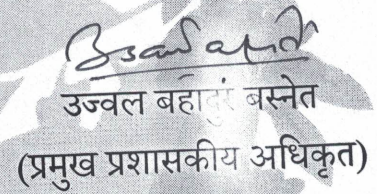 उज्वल बहादुर बस्नेत
(प्रमुख प्रशासकीय अधिकृत)